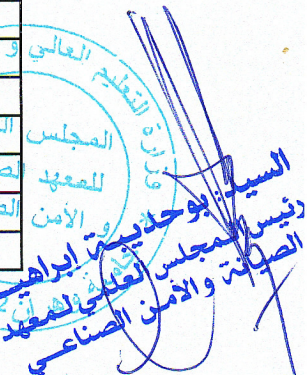 وزارة التعليم العالي و
المجلس
للمعهد
و الأمن
السيد: بوحديبة ابراهيم
رئيس المجلس العلمي لمعهد
الصيانة والأمن الصناعي